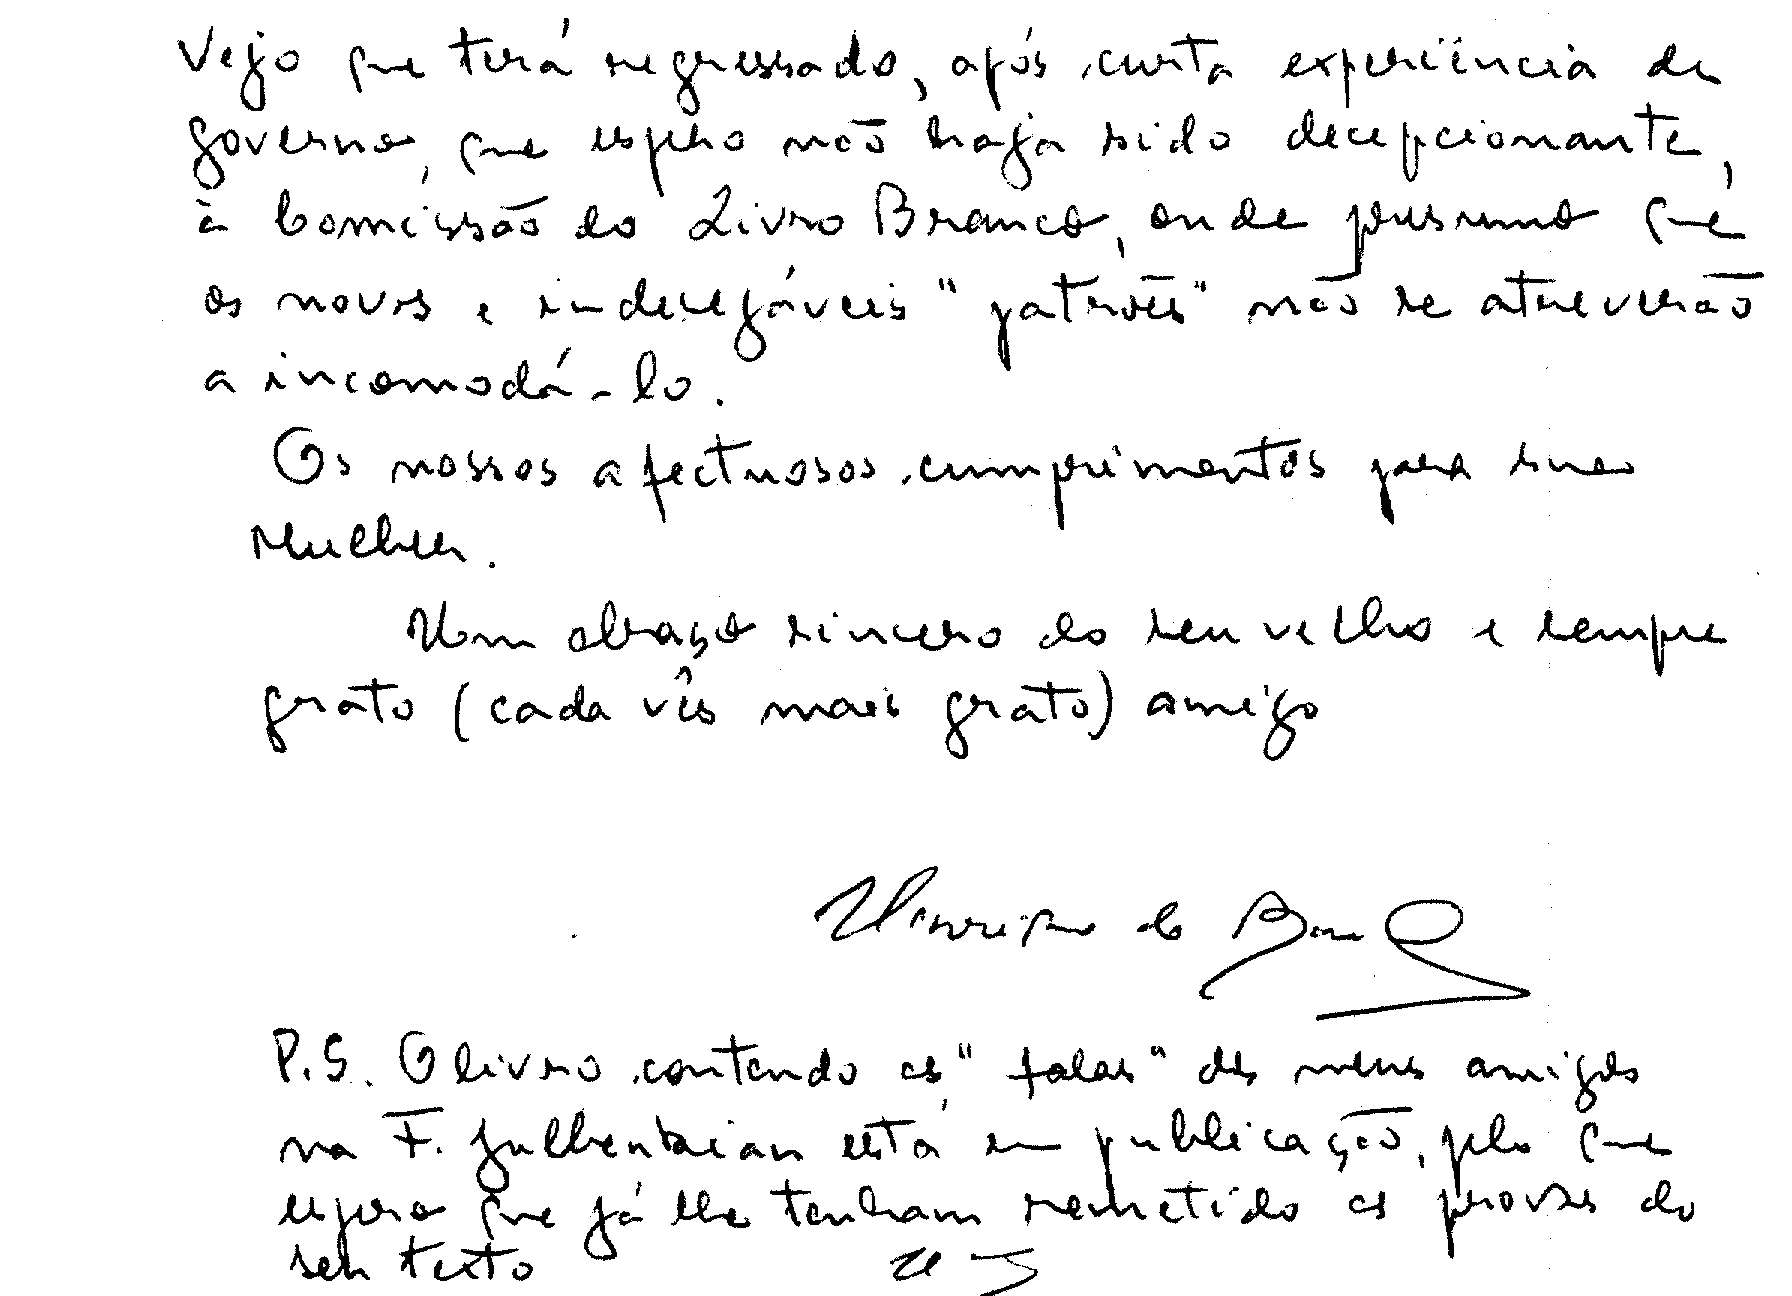 Vejo que terá regressado, após curta experiência de
governo, que espero não haja sido decepcionante,
à Comissão do Livro Branco, onde presumo que
os novos e indesejáveis "patrões" não se atreverão
a incomodá-lo.
Os nossos afectuosos cumprimentos para sua
Mulher.
Um abraço sincero do seu velho e sempre
grato (cada vês mais grato) amigo
Henrique de
P.S. O livro contendo as "falas" dos meus amigos
na F. Gulbenkian está em publicação, pelo que
espero que já lhe tenham remetido as provas do
seu texto